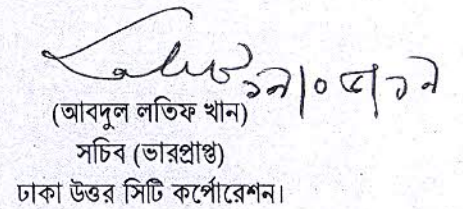 ১৯|০৫|১৯
(আবদুল লতিফ খান)
সচিব (ভারপ্রাপ্ত)
ঢাকা উত্তর সিটি কর্পোরেশন।